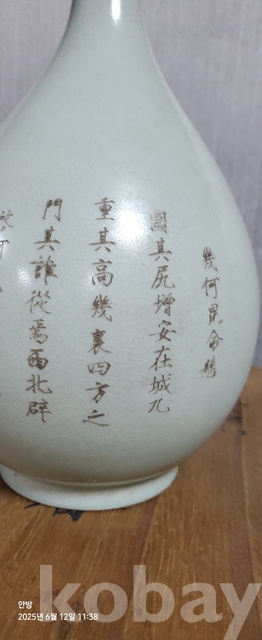 幾何昆侖縣
圃其尻增安在城九
重其高幾裏四方之
門其誰從焉西北辟
안방
2025년 6월 12일 11:38
kobay